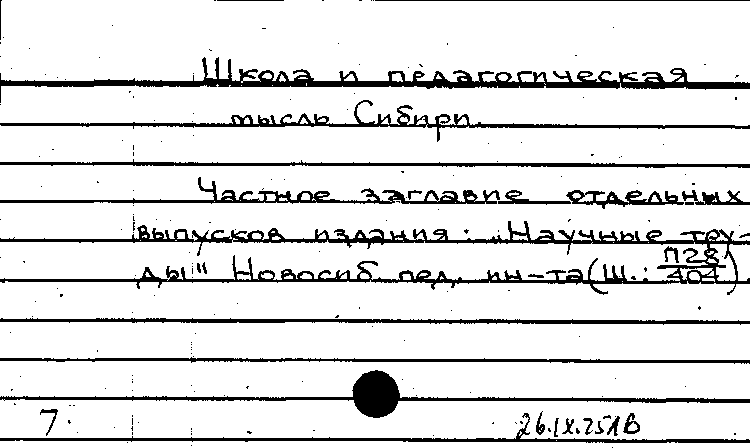 Школа и педагогическая
мысль Сибири.
Частное заглавие отдельных
выпусков издания: „Научные тру-
ды" Новосиб. пед. ин-та (Ш.: П28/404).
7.
26.IX.75